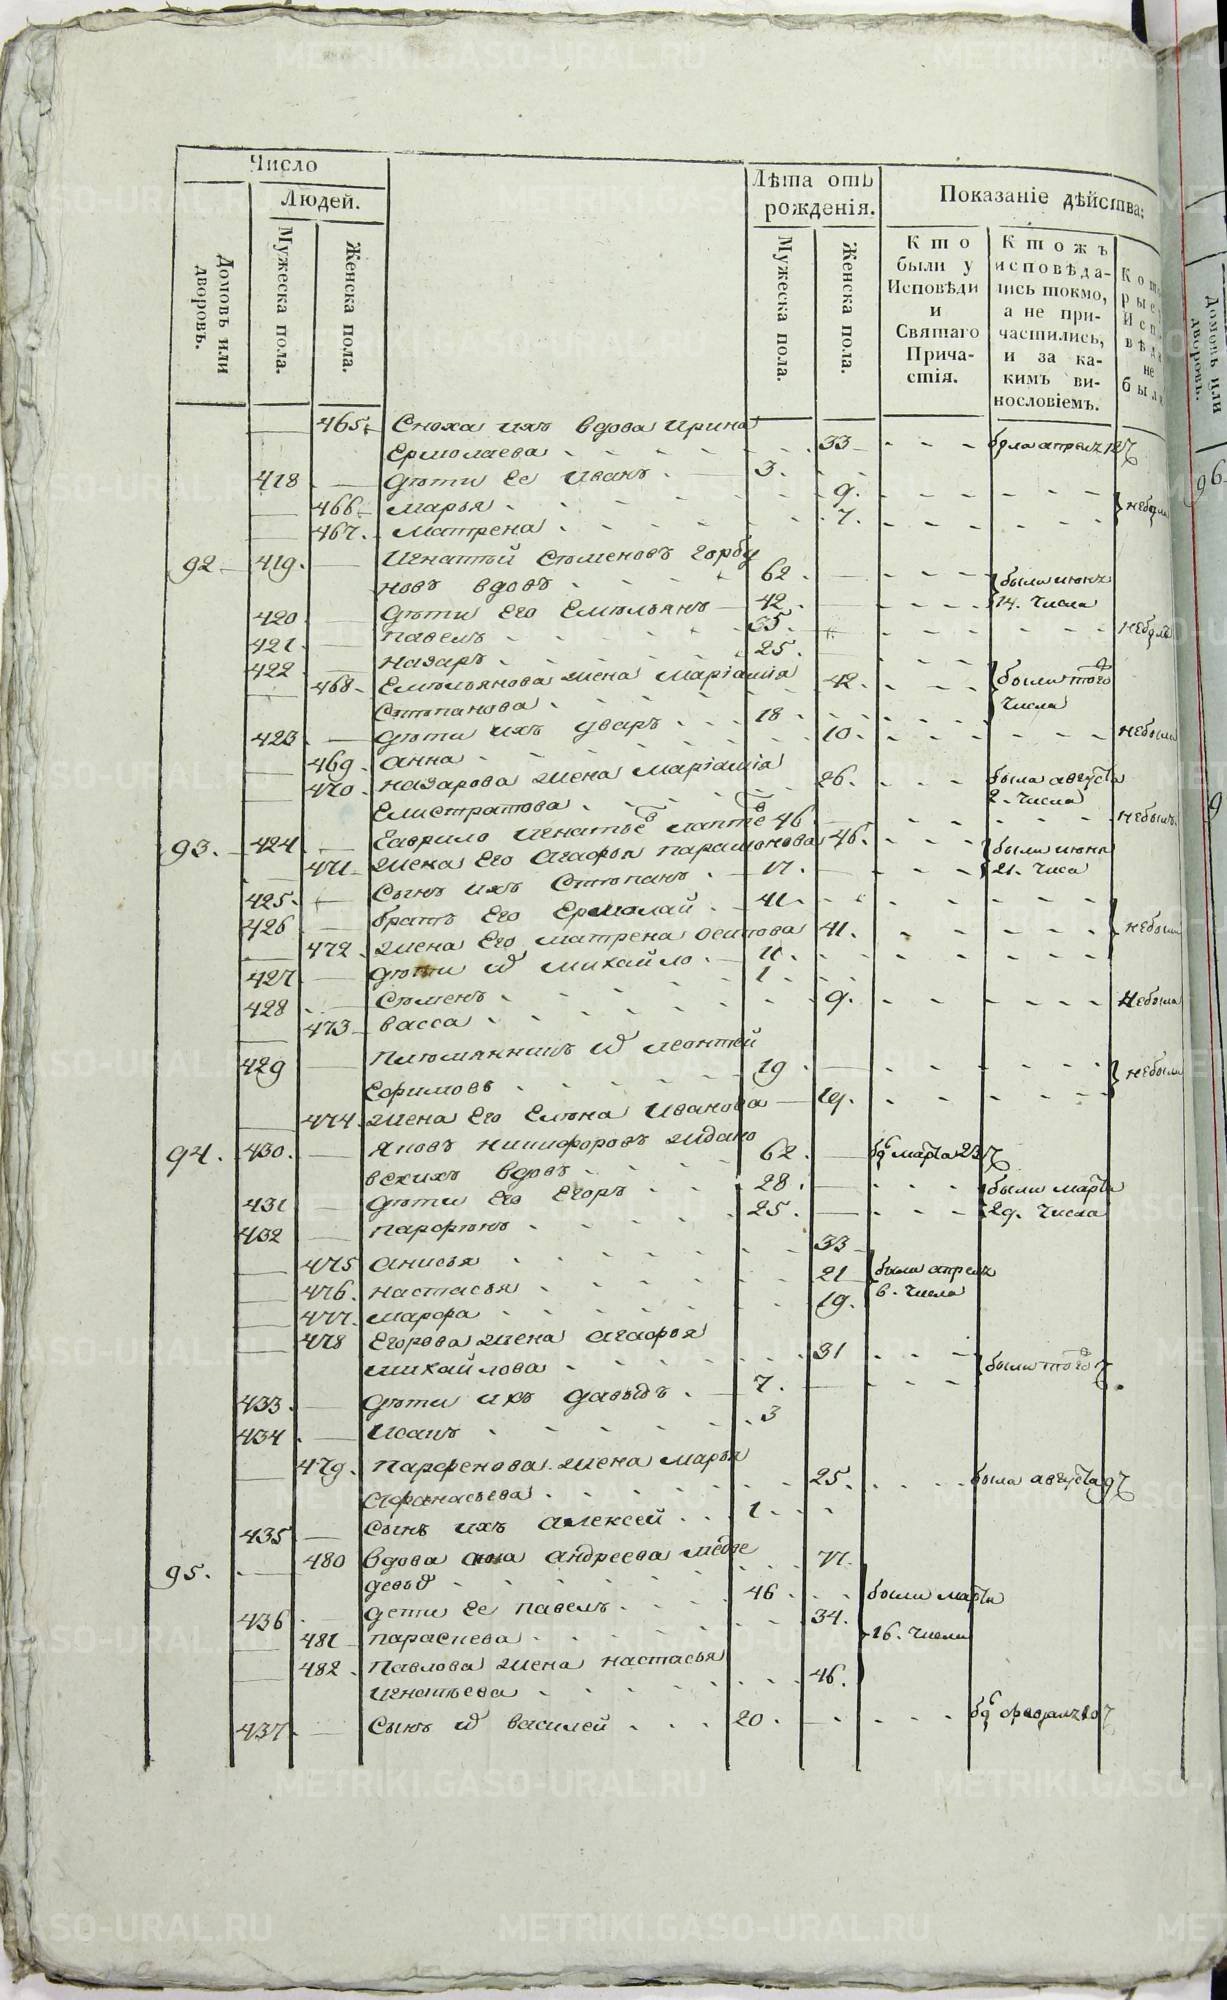 Число
Людей.
Домовъ или дворовъ.
Мужеска пола.
Женска пола.
Лѣта отъ рожденія.
Мужеска пола.
Женска пола.
Показаніе дѣйства:
Кто были у Исповѣди и Святаго Причастія.
Ктожъ исповѣдались токмо, а не причастились, и за какимъ винословіемъ.
465. Сноха ихъ вдова Ирина
Ермолаева 33
418 дѣти ее Иванъ 3.
466 марья 9.
467. матрена 7. небыли
92 419. Игнатий Семеновъ горбу
новъ вдовъ 62 были июня
420 дѣти его Емельянъ 42. 14. числа
421. павелъ 35. небылъ
422 назаръ 25.
468 Емельянова жена Мариамия 42 были того
Степанова числа
423 дѣти ихъ уваръ 18
469. анна 10. небыли
470. назарова жена Мариамия 26. была августа
Елистратова 2. числа
93. 424 Гаврило Игнатьевъ лаптевъ 46 небылъ
471 жена его Агафья парамонова 46. были июня
425. сынъ ихъ Степанъ 17. 21. числа
426 братъ его Ермолай 41
472. жена его матрена осипова 41. небыли
427 дѣти михайло 11.
428 Семенъ 1
473 васса 9. небыла
429 племянникъ леонтей
Ефимовъ 19 небыли
474 жена его Елена Иванова 19.
94. 430. Яковъ никифоровъ ждано
вскихъ вдовъ 62. марта 23
431 дѣти его Егоръ 28. были марта
432 парфенъ 25. 29. числа
475 анисья 33
476. настасья 21 были апреля
477. марфа 19. 6. числа
478 Егорова жена агафья
михайлова 31 были того
433. дѣти ихъ давыдъ 7.
434 Исакъ 3
479. Парфенова жена марья
Афанасьева 25. была августа 9
435 сынъ ихъ алексей 1
95. 480 вдова анна андреева медве
46 были марта
436 дети ее павелъ 34. 16. числа
481 параскева
482. Павлова жена настасья
Игнатьева 46.
437 сынъ василей 20.
METRIKI.GASO-URAL.RU